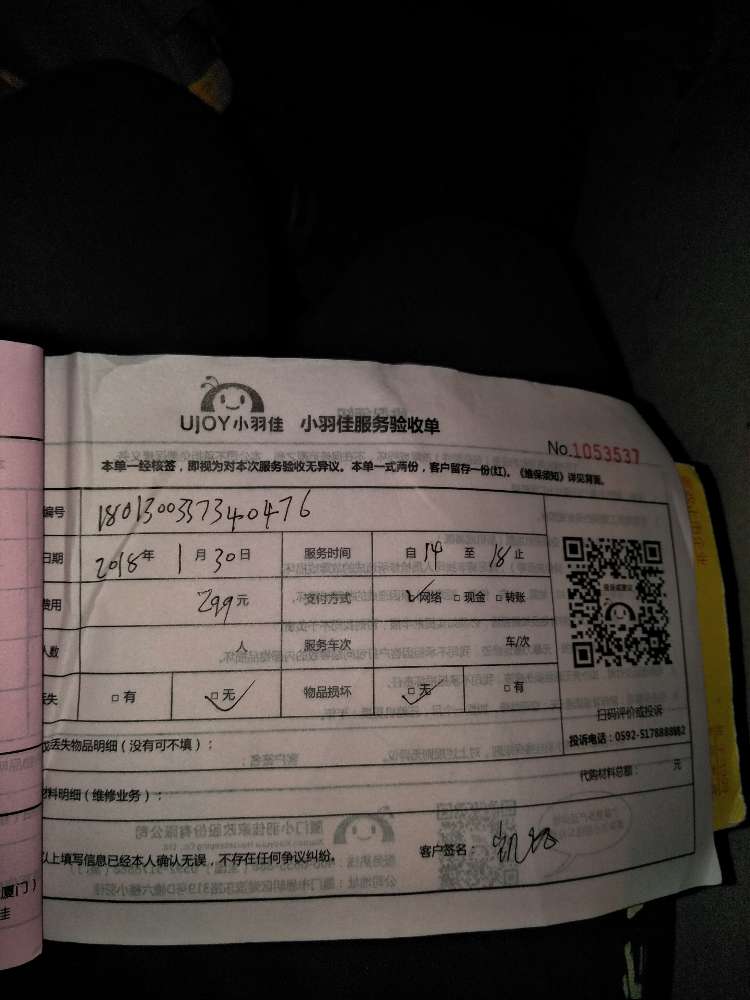 UjOY小羽佳 小羽佳服务验收单
No.1053537
本单一经核签，即视为对本次服务验收无异议。本单一式两份，客户留存一份(红)。《维保须知》详见背面。
编号 1801300337340476
日期 2018年 1月30日 服务时间 自14至18止
费用 299元 支付方式 ☑网络 □现金 □转账
人数 人 服务车次 车/次
丢失 □有 ☑无 物品损坏 ☑无 □有
扫码评价或投诉
投诉电话：0592-5178888转2
丢失物品明细（没有可不填）：
代购材料总额： 元
材料明细（维修业务）：
以上填写信息已经本人确认无误，不存在任何争议纠纷。 客户签名：
厦门）
佳